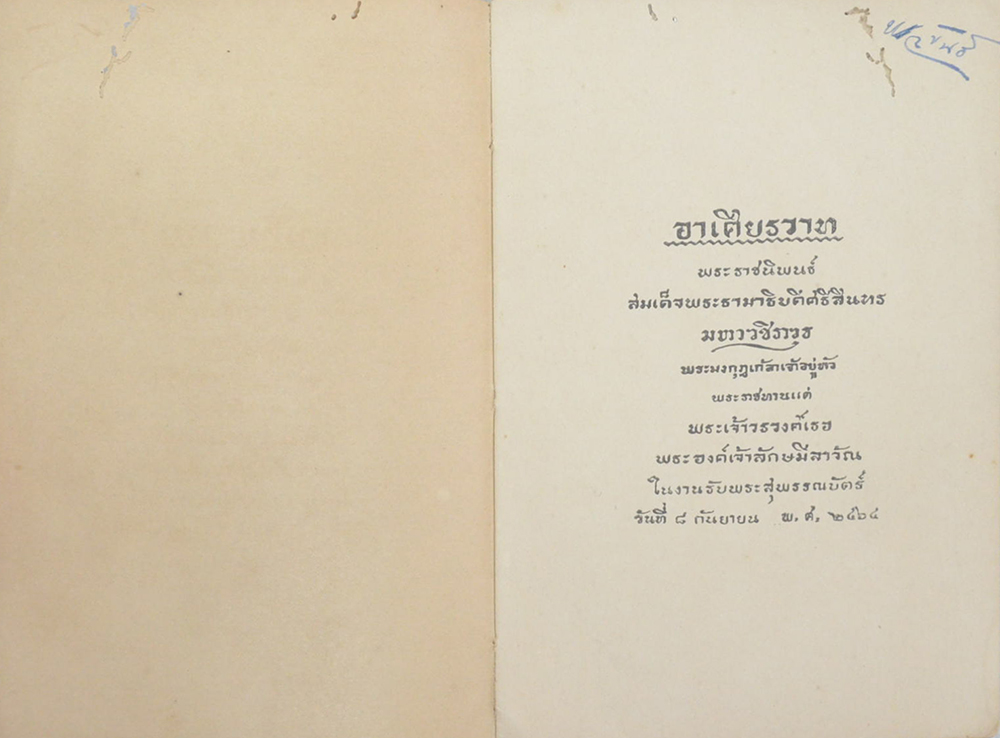 อาเศียรวาท
พระราชนิพนธ์
สมเด็จพระรามาธิบดีศรีสินทร
มหาวชิราวุธ
พระมงกุฎเกล้าเจ้าอยู่หัว
พระราชทานแด่
พระเจ้าวรวงศ์เธอ
พระองค์เจ้าลักษมีลาวัณ
ในงานรับพระสุพรรณบัตร์
วันที่ ๘ กันยายน พ.ศ. ๒๔๖๔